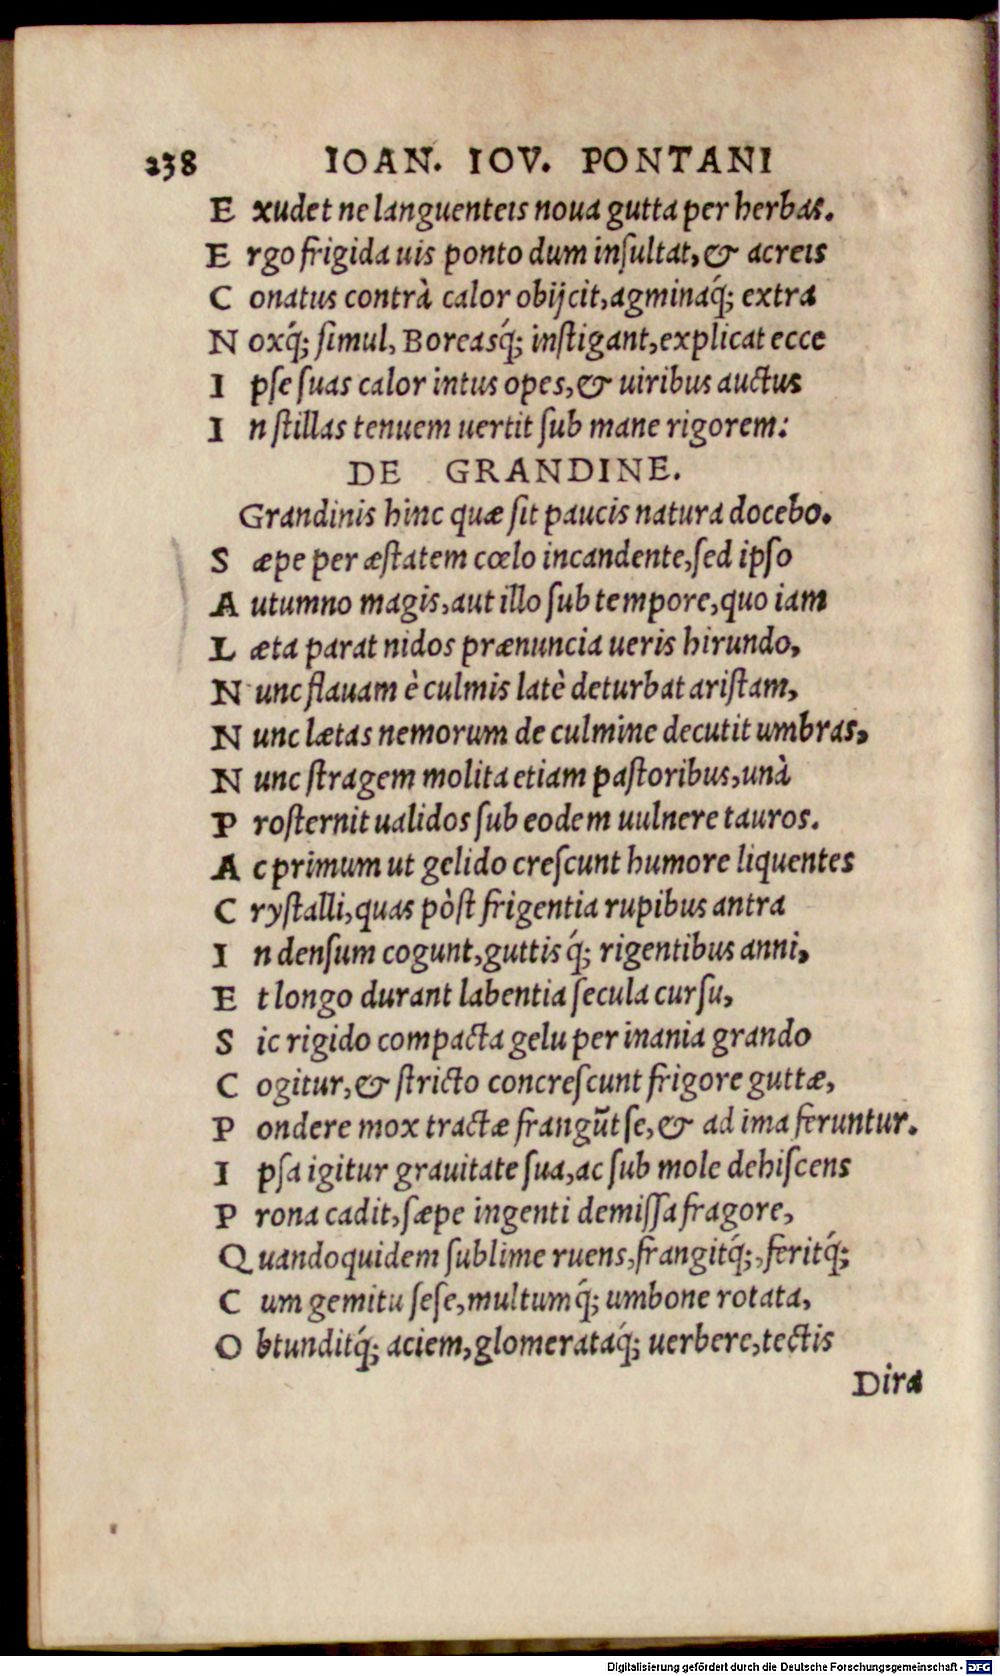 238 IOAN. IOV. PONTANI
E xudet ne languenteis noua gutta per herbas.
E rgo frigida uis ponto dum insultat, & acreis
C onatus contrà calor obijcit, agminaq́; extra
N oxq́; simul, Boreasq́; instigant, explicat ecce
I pse suas calor intus opes, & uiribus auctus
I n stillas tenuem uertit sub mane rigorem:
DE GRANDINE.
Grandinis hinc quæ sit paucis natura docebo.
S æpe per æstatem cœlo incandente, sed ipso
A utumno magis, aut illo sub tempore, quo iam
L æta parat nidos prænuncia ueris hirundo,
N unc flauam è culmis latè deturbat aristam,
N unc lætas nemorum de culmine decutit umbras,
N unc stragem molita etiam pastoribus, unà
P rosternit ualidos sub eodem uulnere tauros.
A c primum ut gelido crescunt humore liquentes
C rystalli, quas pòst frigentia rupibus antra
I n densum cogunt, guttis q́; rigentibus anni,
E t longo durant labentia secula cursu,
S ic rigido compacta gelu per inania grando
C ogitur, & stricto concrescunt frigore guttæ,
P ondere mox tractæ frangũt se, & ad ima feruntur.
I psa igitur grauitate sua, ac sub mole dehiscens
P rona cadit, sæpe ingenti demissa fragore,
Q uandoquidem sublime ruens, frangitq́;, feritq́;
C um gemitu sese, multumq́; umbone rotata,
O btunditq́; aciem, glomerataq́; uerbere, tectis
Dira
Digitalisierung gefördert durch die Deutsche Forschungsgemeinschaft - DFG